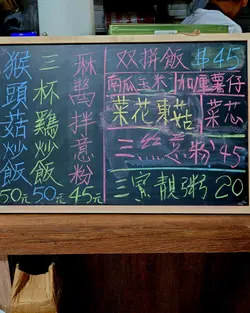 猴頭菇炒飯 50元
三杯鷄炒飯 50元
麻醬拌意粉 45元
双拼飯 $45
南瓜玉米 咖喱薯仔
菜花東菇 菜芯
三 粉 45
三寶靚粥 20